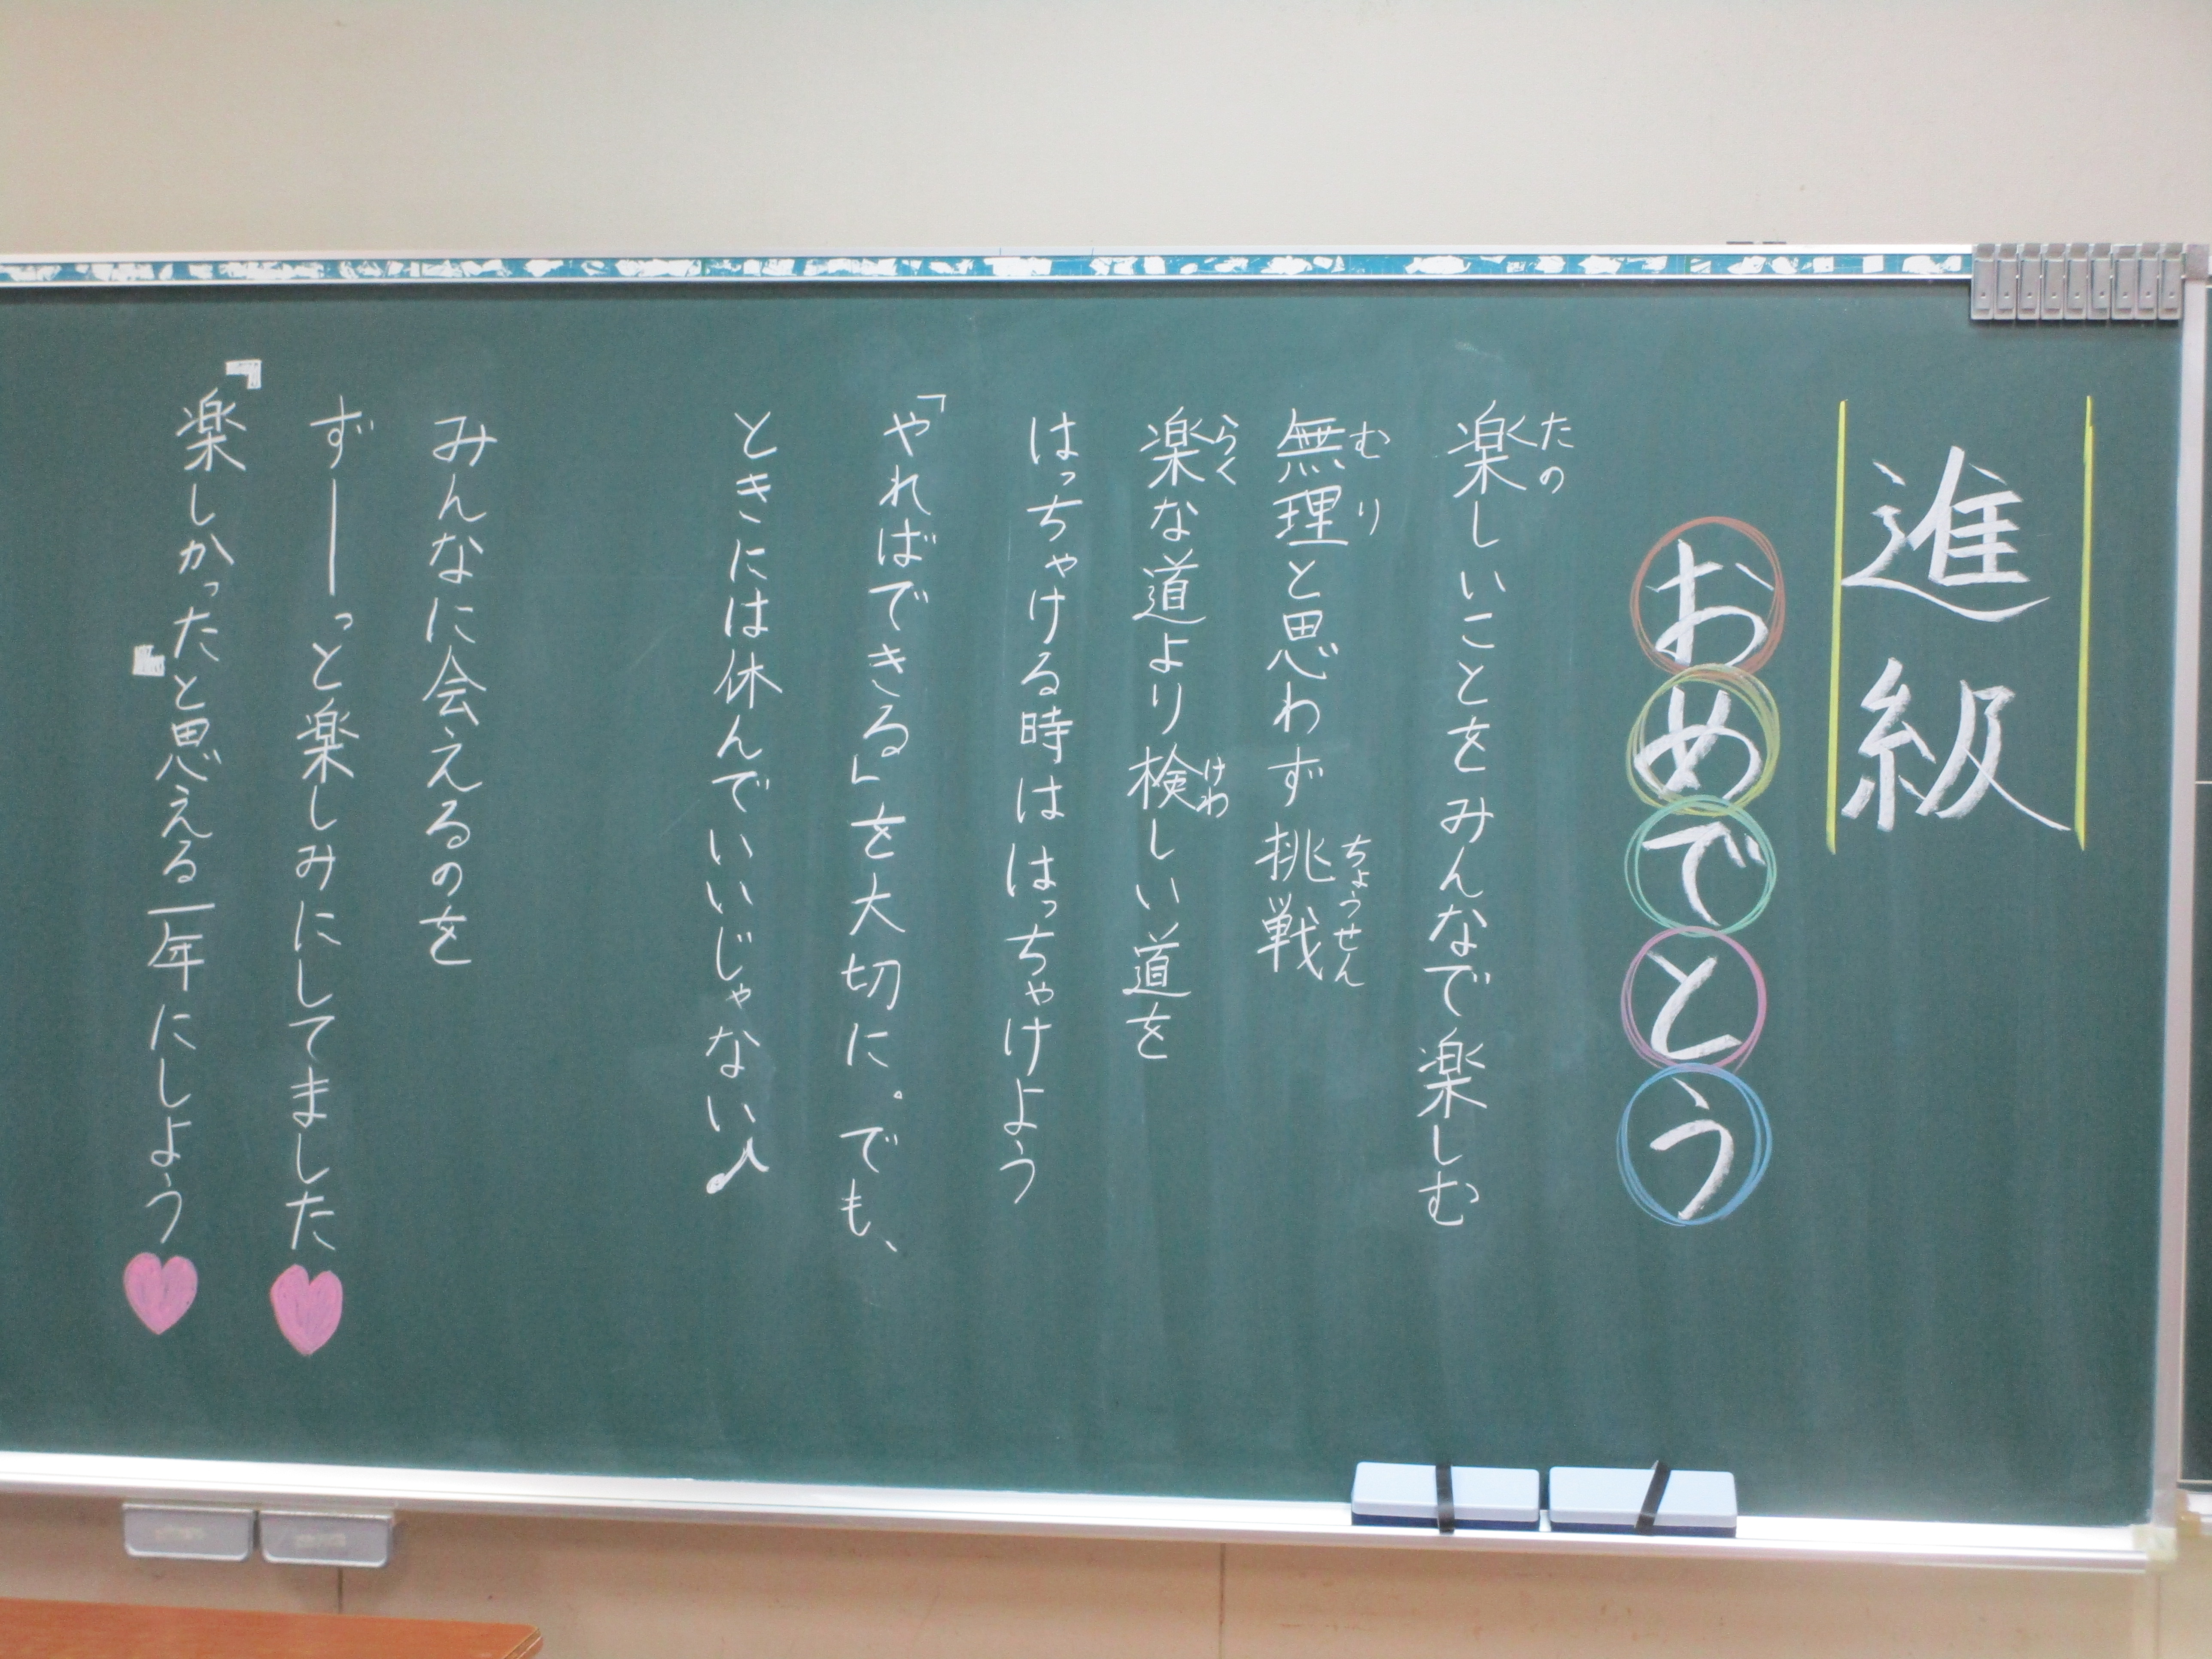 進級
おめでとう
楽しいことをみんなで楽しむ
たの
無理と思わず挑戦
むり ちょうせん
楽な道より検しい道を
らく けわ
はっちゃける時ははっちゃけよう
「やればできる」を大切に。でも、
ときには休んでいいじゃない♪
みんなに会えるのを
ずーーっと楽しみにしてました♥
『楽しかった』と思える一年にしよう♥